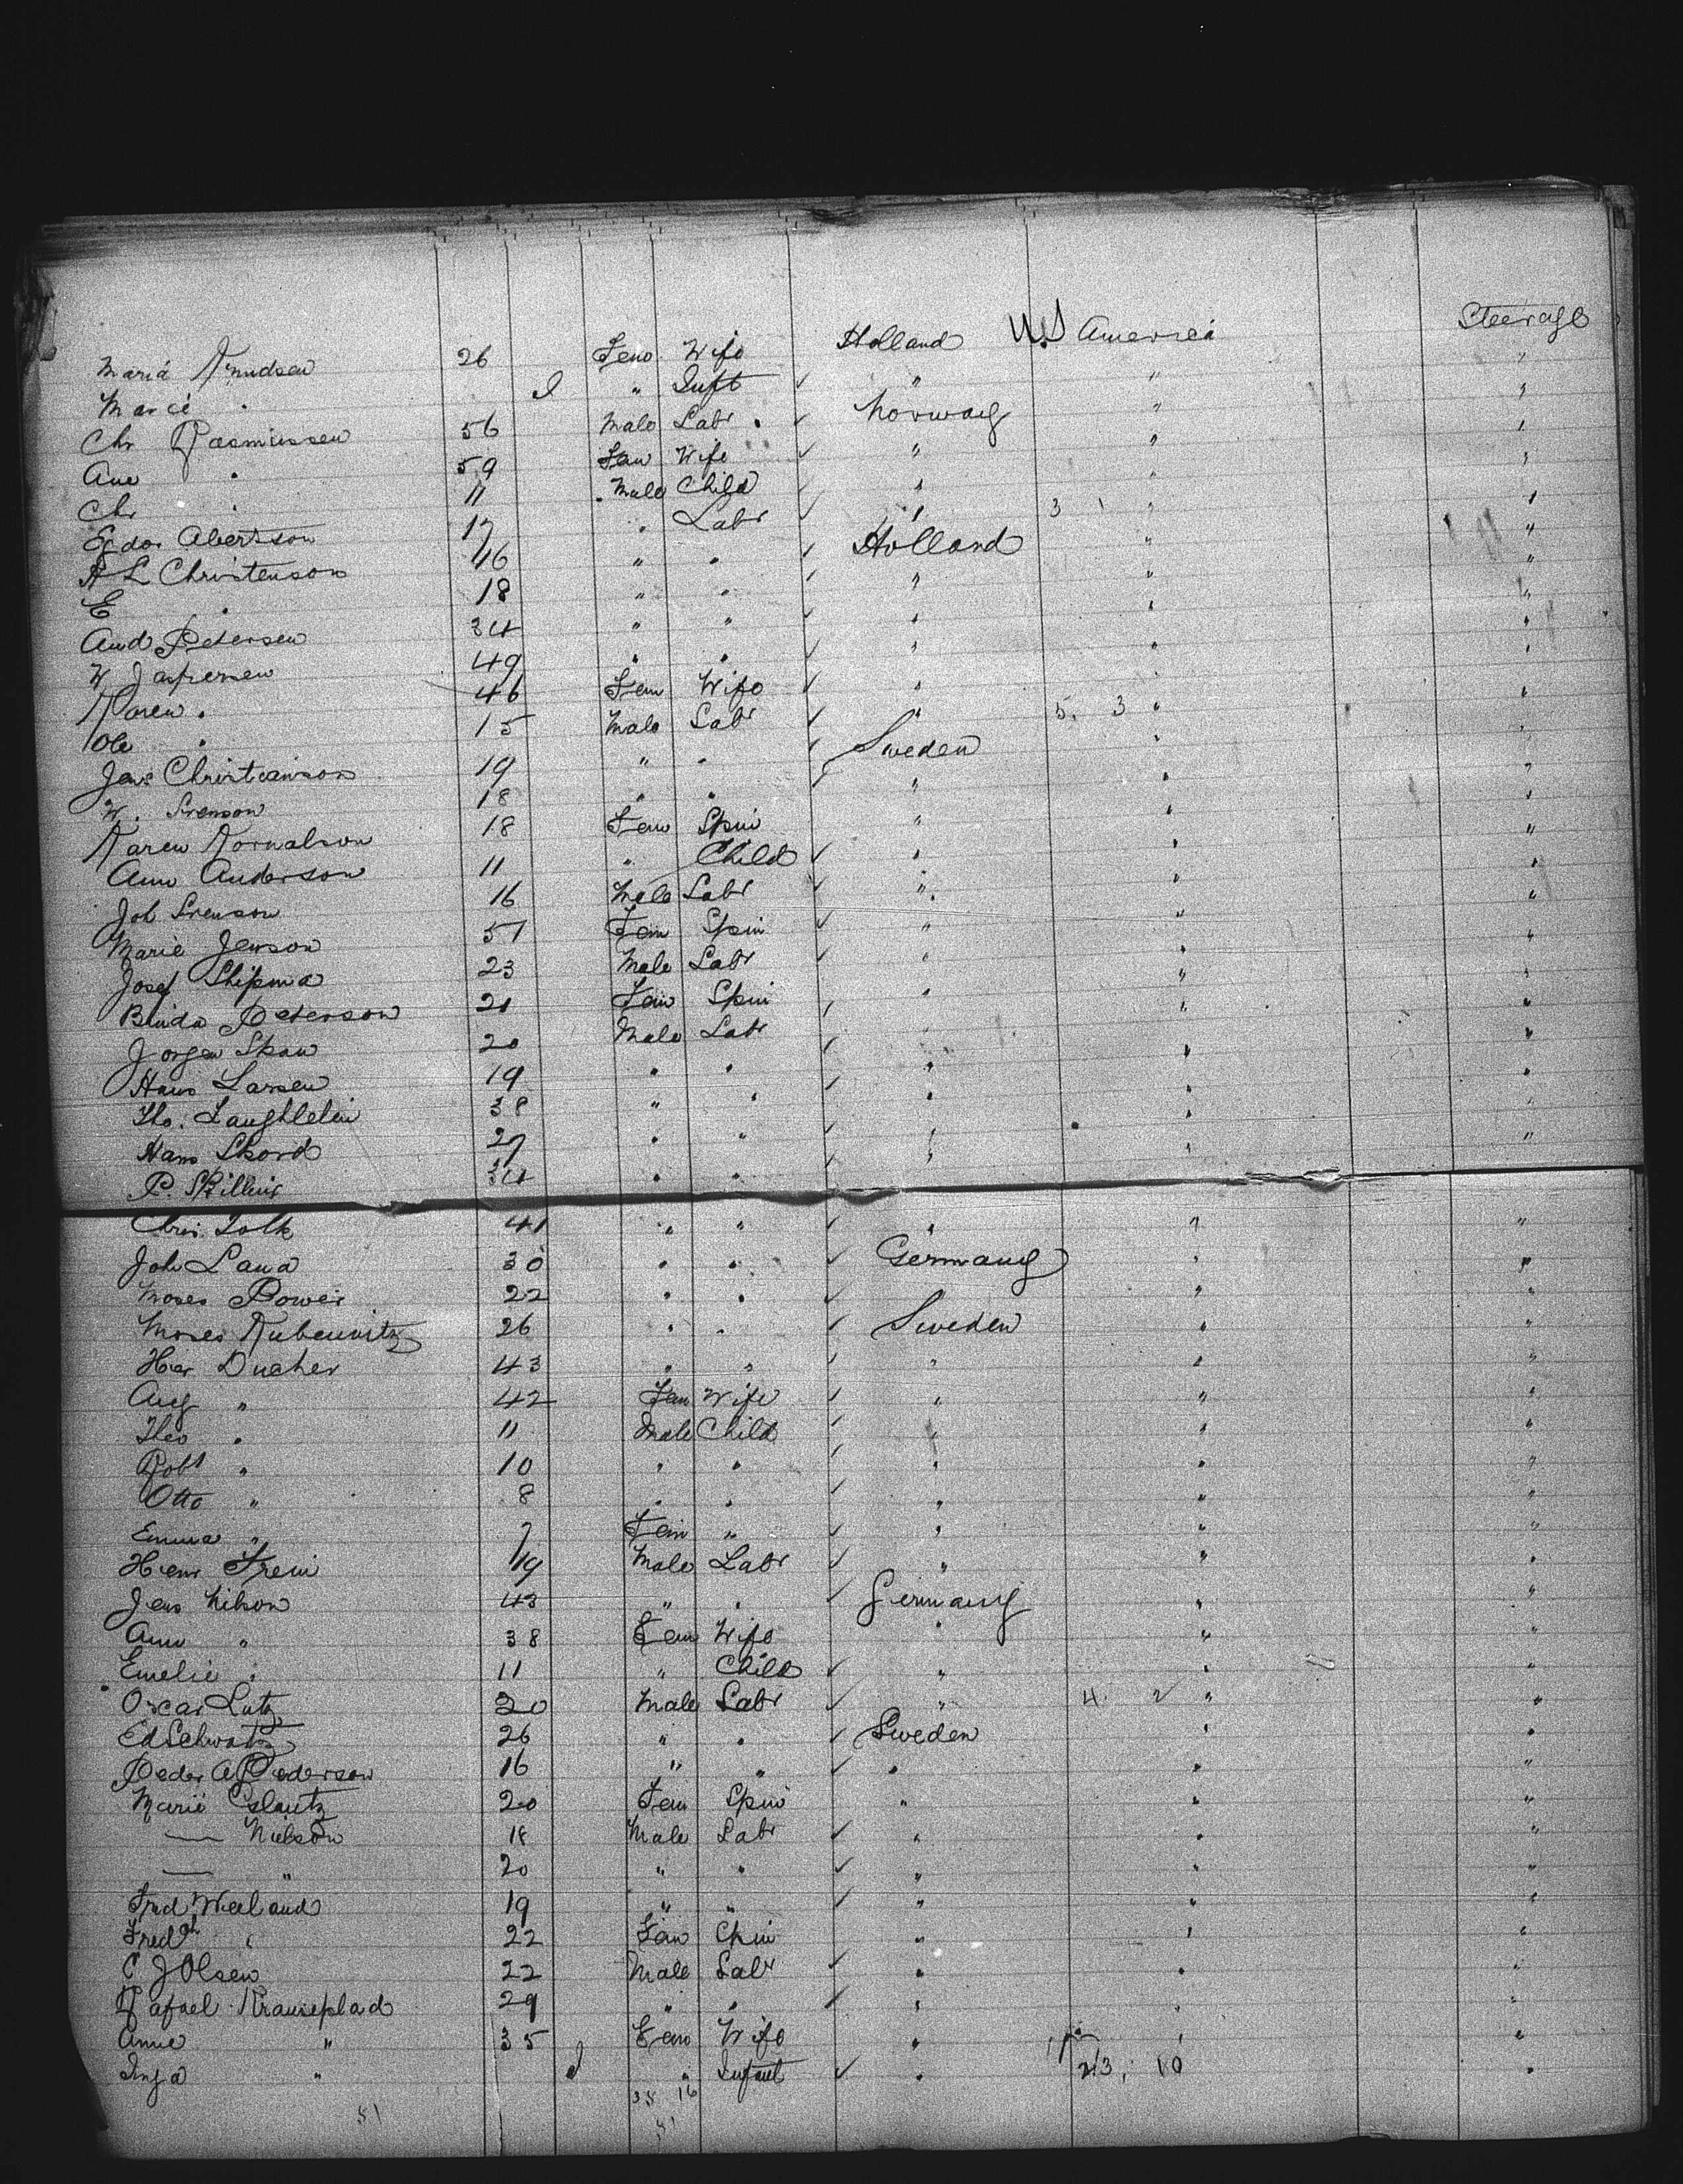 Maria Knudsen 26 Fem Wife Holland U.S America Steerage
Marie " I " Inft ✓ " " "
Chr Rasmussen 56 Male Labr ✓ Norway " "
Ane " 59 Fem Wife ✓ " " "
Chr " 11 Male Child ✓ " " "
Abertson 17 " Labr ✓ " 3 1 " "
A L Christenson 16 " " ✓ Holland " "
E " 18 " " ✓ " " "
And Petersen 34 " " ✓ " " "
W Jaspersen 49 " " ✓ " " "
Karen " 46 Fem Wife ✓ " " "
Ole " 15 Male Labr ✓ " 5. 3 " "
Jens Christianson 19 " " ✓ Sweden " "
W. Svenson 18 " " " " "
Karen 18 Fem Spin " " "
Ann Anderson 11 " Child ✓ " " "
Joh Svenson 16 Male Labr ✓ " " "
Marie Jenson 51 Fem Spin ✓ " " "
Josef Shipma 23 Male Labr ✓ " " "
Peterson 21 Fem Spin ✓ " " "
Jorgen Skow 20 Male Labr ✓ " "
Hans Larsen 19 " " ✓ " " "
Tho. 38 " " ✓ " " "
Hans Skord 27 " " ✓ " " "
P. 34 " " ✓ " " "
Chris. 41 " " ✓ " " "
Joh Lana 30 " " ✓ Germany " "
Moses Power 22 " " ✓ " "
Moses Rubenvitz 26 " " ✓ Sweden " "
Her Ducher 43 " " ✓ " " "
Aug " 42 Fem Wife ✓ " " "
Theo " 11 Male Child ✓ " " "
Robt " 10 " " ✓ " " "
Otto " 8 " " ✓ " " "
Emma " 7 Fem " ✓ " " "
Frein 19 Male Labr ✓ " " "
Jens Nilson 43 " " ✓ Germany " "
Ann " 38 Fem Wife " " "
Emelie " 11 " Child ✓ " " "
Oscar Lutz 20 Male Labr ✓ " 4. 2 " "
Ed Schwatz 26 " " ✓ Sweden " "
Peder A Pederson 16 " " ✓ " " "
Marie 20 Fem Spin " " "
— Nielson 18 Male Labr ✓ " " "
— " 20 " " ✓ " " "
Fred Weeland 19 " " ✓ " " "
Fred " 22 Fem " " "
C J Olsen 22 Male Labr ✓ " " "
Rafael Krauseplad 29 " " ✓ " " "
Anne " 35 Fem Wife " " "
Inga " I " Infant ✓ " 10 "
38 16
51 51